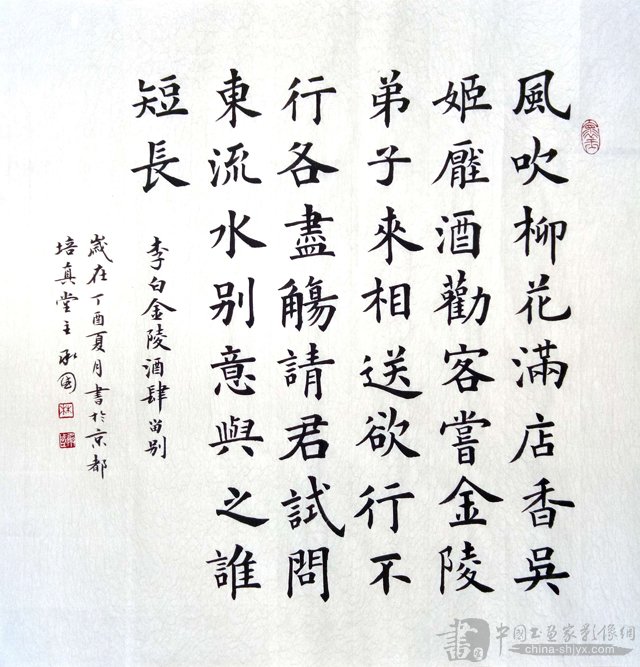 風吹柳花滿店香吳
姬壓酒勸客嘗金陵
弟子來相送欲行不
行各盡觴請君試問
東流水别意與之誰
短長
李白金陵酒肆留别
歲在丁酉夏月書於京都
培真堂主承圖
書
中国书画家影像網
china-shjyx.com